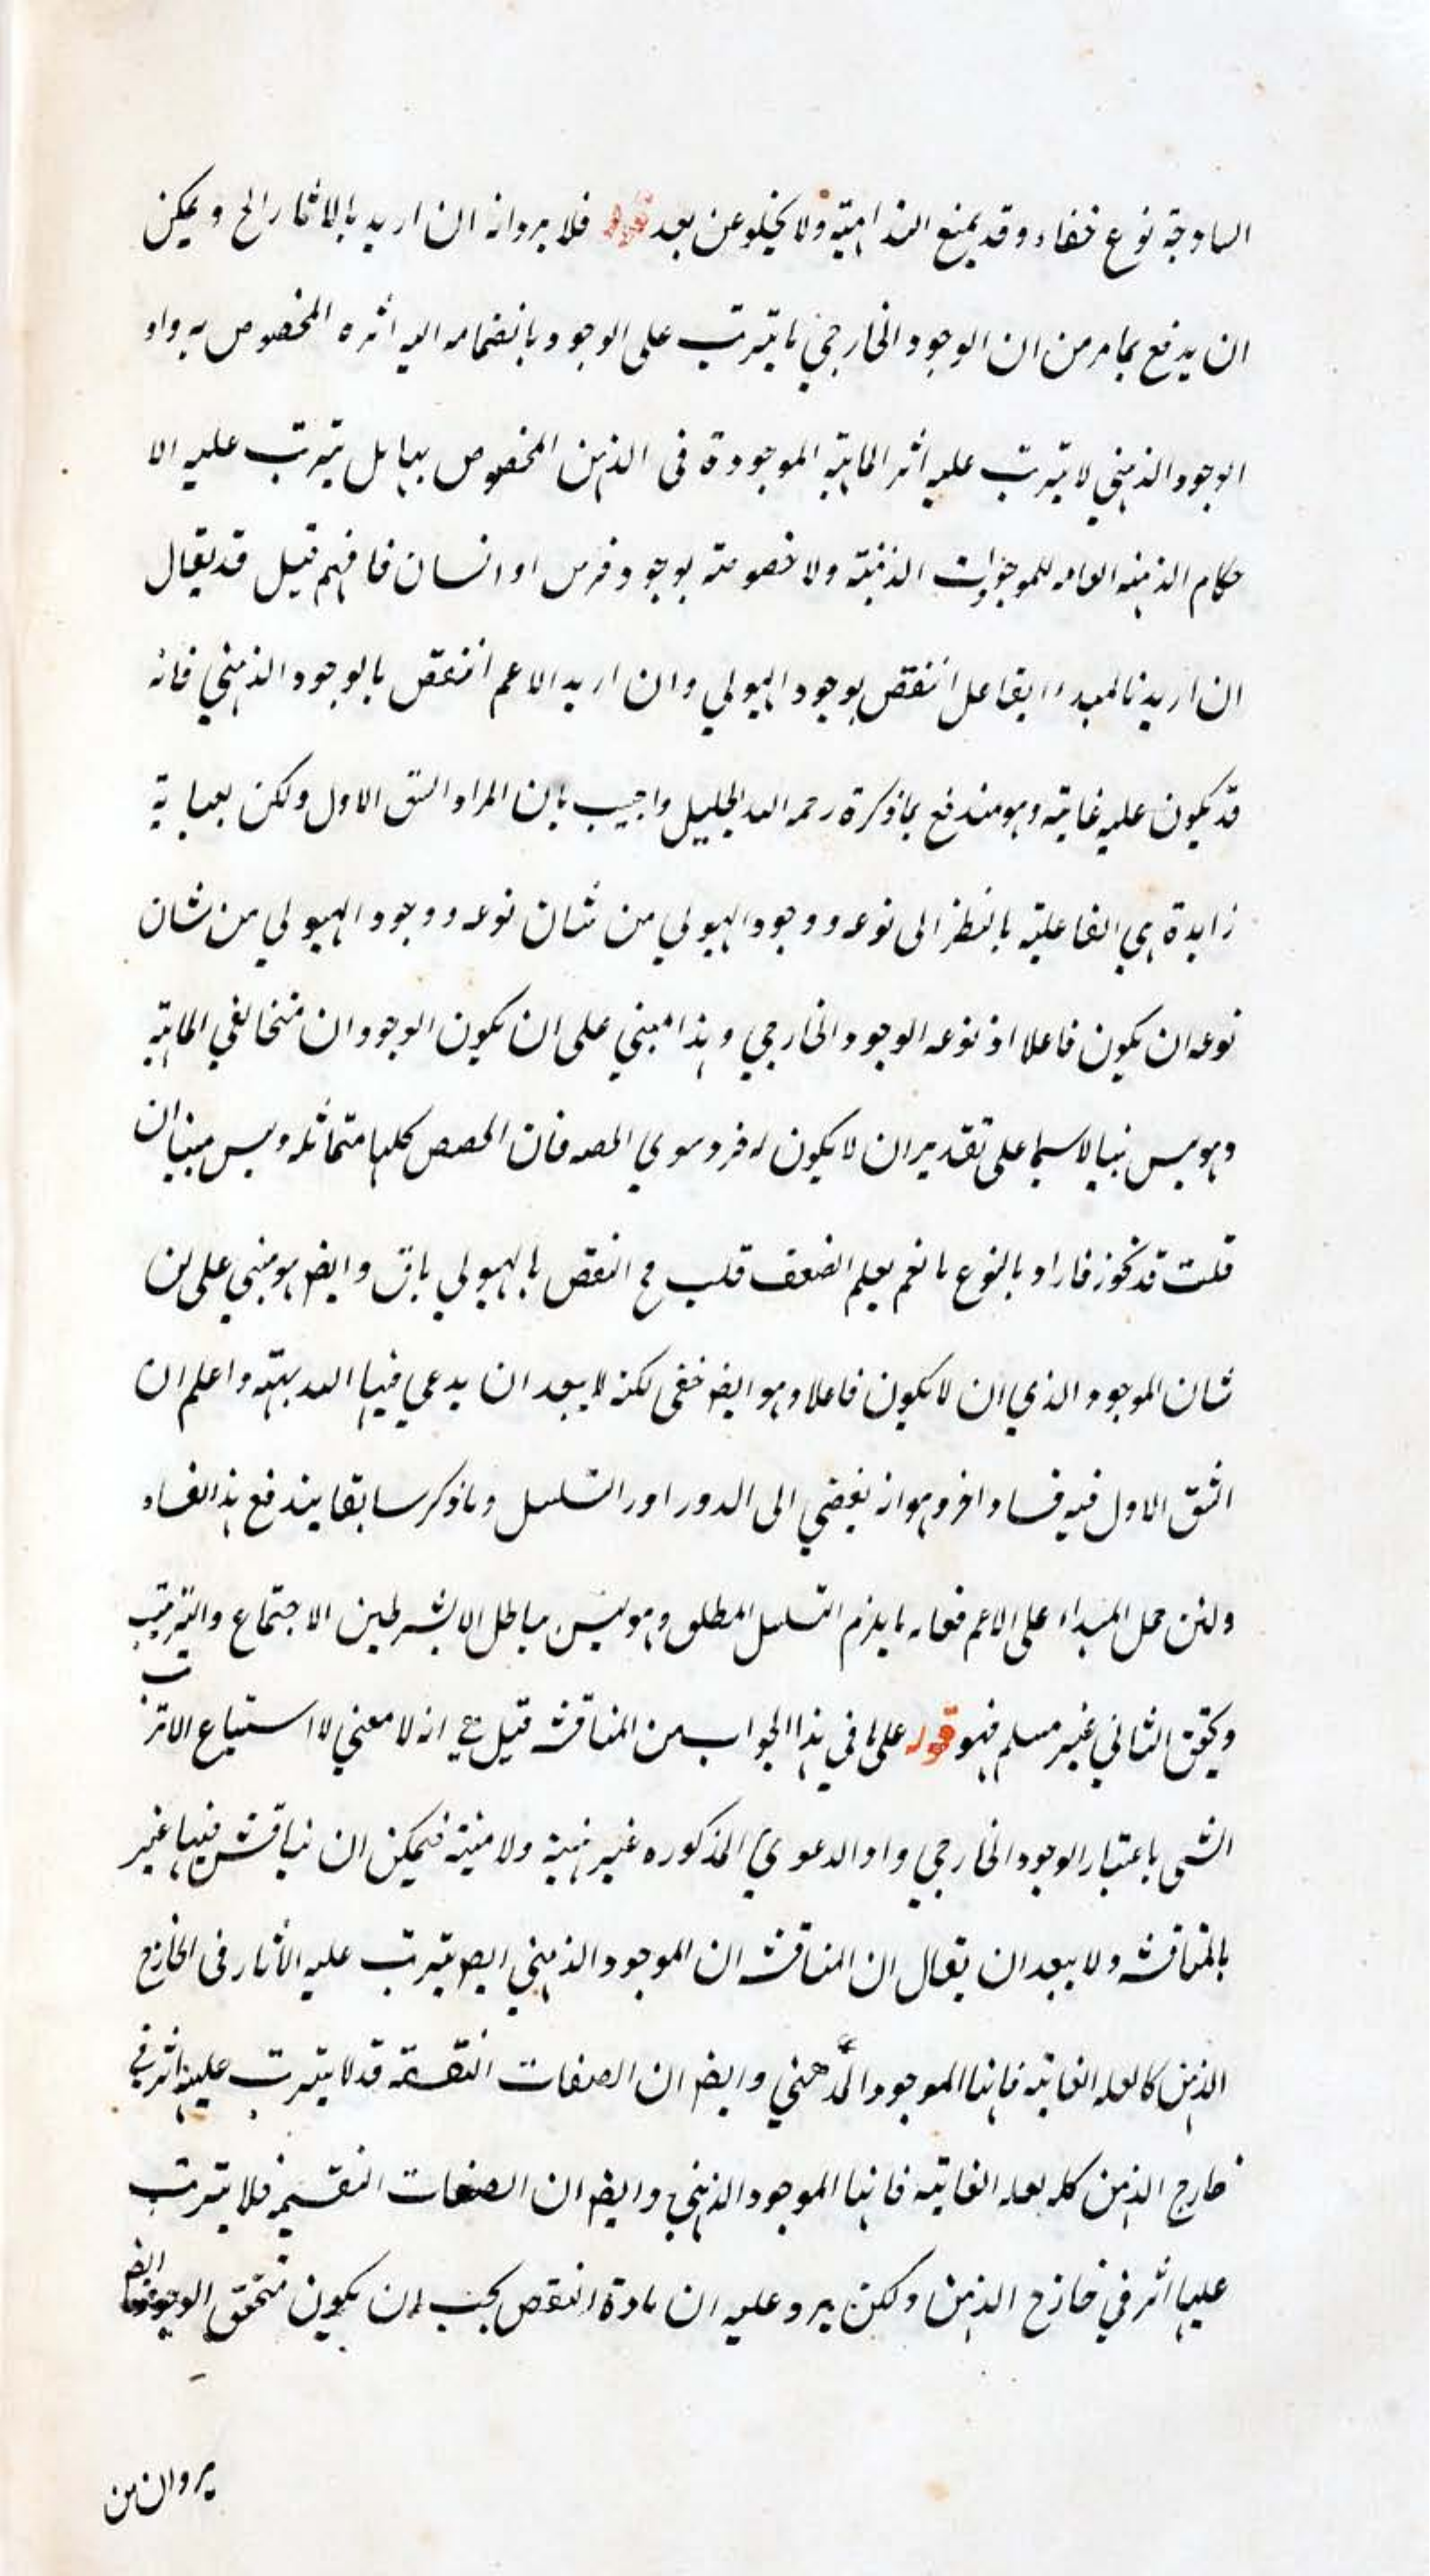 الساوجة نوع خفاء وقد يمنع البداهية ولا يخلو عن بعد قوله فلا يرد انه ان اريد بالاثار الخ ويمكن
ان يدفع بما مر من ان الوجود الخارجي ما يترتب على الوجود بانضمامه اليه اثره المخصوص به واو
الوجود الذهني لا يترتب عليه اثر الماهية الموجودة في الذهن المخصوص بها بل يترتب عليه الا
حكام الذهنيه العامه للموجودات الذهنية ولا خصوصته بوجود فرس او انسان فافهم قيل قد يقال
ان اريد بالمبداء الفاعل انتقض بوجود الهيولي وان اريد الاعم انتقض بالوجود الذهني فانه
قد يكون عليه غايته وهو مندفع بما ذكرة رحمه الله الجليل واجيب بان المراد الشق الاول ولكن بعناية
زايدة هي الفاعلية بالنظر الى نوعه ووجود الهيولي من شان نوعه ووجود الهيولي من شان
نوعه ان يكون فاعلا اذ نوعه الوجود الخارجي وهذا مبني على ان يكون الوجودان متخالفي الماهية
وهو ليس بينا لا سيما على تقدير ان لا يكون له فرد سوي الحصه فان الحصص كلها متماثله وليس مبينا ان
قلت قد تجوز فاراد بالنوع ما نعم يعلم الضعف قلت فح النقض بالهيولي باق وايض هو مبني على ان
شان الموجود الذي ان لا يكون فاعلا وهو ايض خفي لكنه لا يبعد ان يدعي فيها البديهة واعلم ان
الشق الاول فيه فساد اخر وهو انه يفضي الى الدور اور التسلسل وما ذكر سابقا يندفع هذا الفساد
ولئن حمل المبداء على الاعم فغايه ما يلزم التسلسل المطلق وهو ليس بباطل الا بشرطين الاجتماع والترتيب
وتحقق الثاني غير مسلم فهو قوله على ما في هذا الجواب من المناقشه قيل هي انه لا معني لا استتباع الاثر
الشى باعتبار الوجود الخارجي واو الدعوي المذكوره غير بينة ولا مبينة فيمكن ان يناقش فيها غير
بالمناقشه ولا يبعد ان يقال ان المناقشه ان الموجود الذهني ايض يترتب عليه الاثار في الخارج
الذهن كالعله الغائيه فانها الموجود الذهني وايض ان الصفات النقسيمه قد لا يترتب عليها اثر في
خارج الذهن كله بعله الغائيه فانها الموجود الذهني وايض ان الصفات النقسيمه فلا يترتب
عليها اثر في خارج الذهن ولكن يرد عليه ان مادة النقض يجب ان يكون متحقق الوجود ايض
يردان من